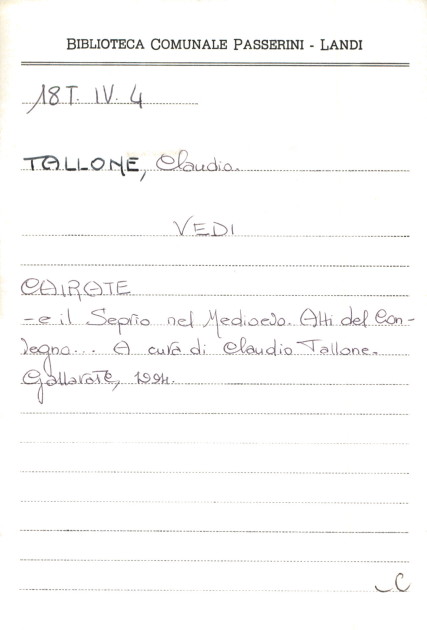 BIBLIOTECA COMUNALE PASSERINI - LANDI
18T. IV. 4
TALLONE, Claudio.
VEDI
CAIRATE
- e il Seprio nel Medioevo. Atti del Con-
vegno... A cura di Claudio Tallone.
Gallarate, 1994.
C